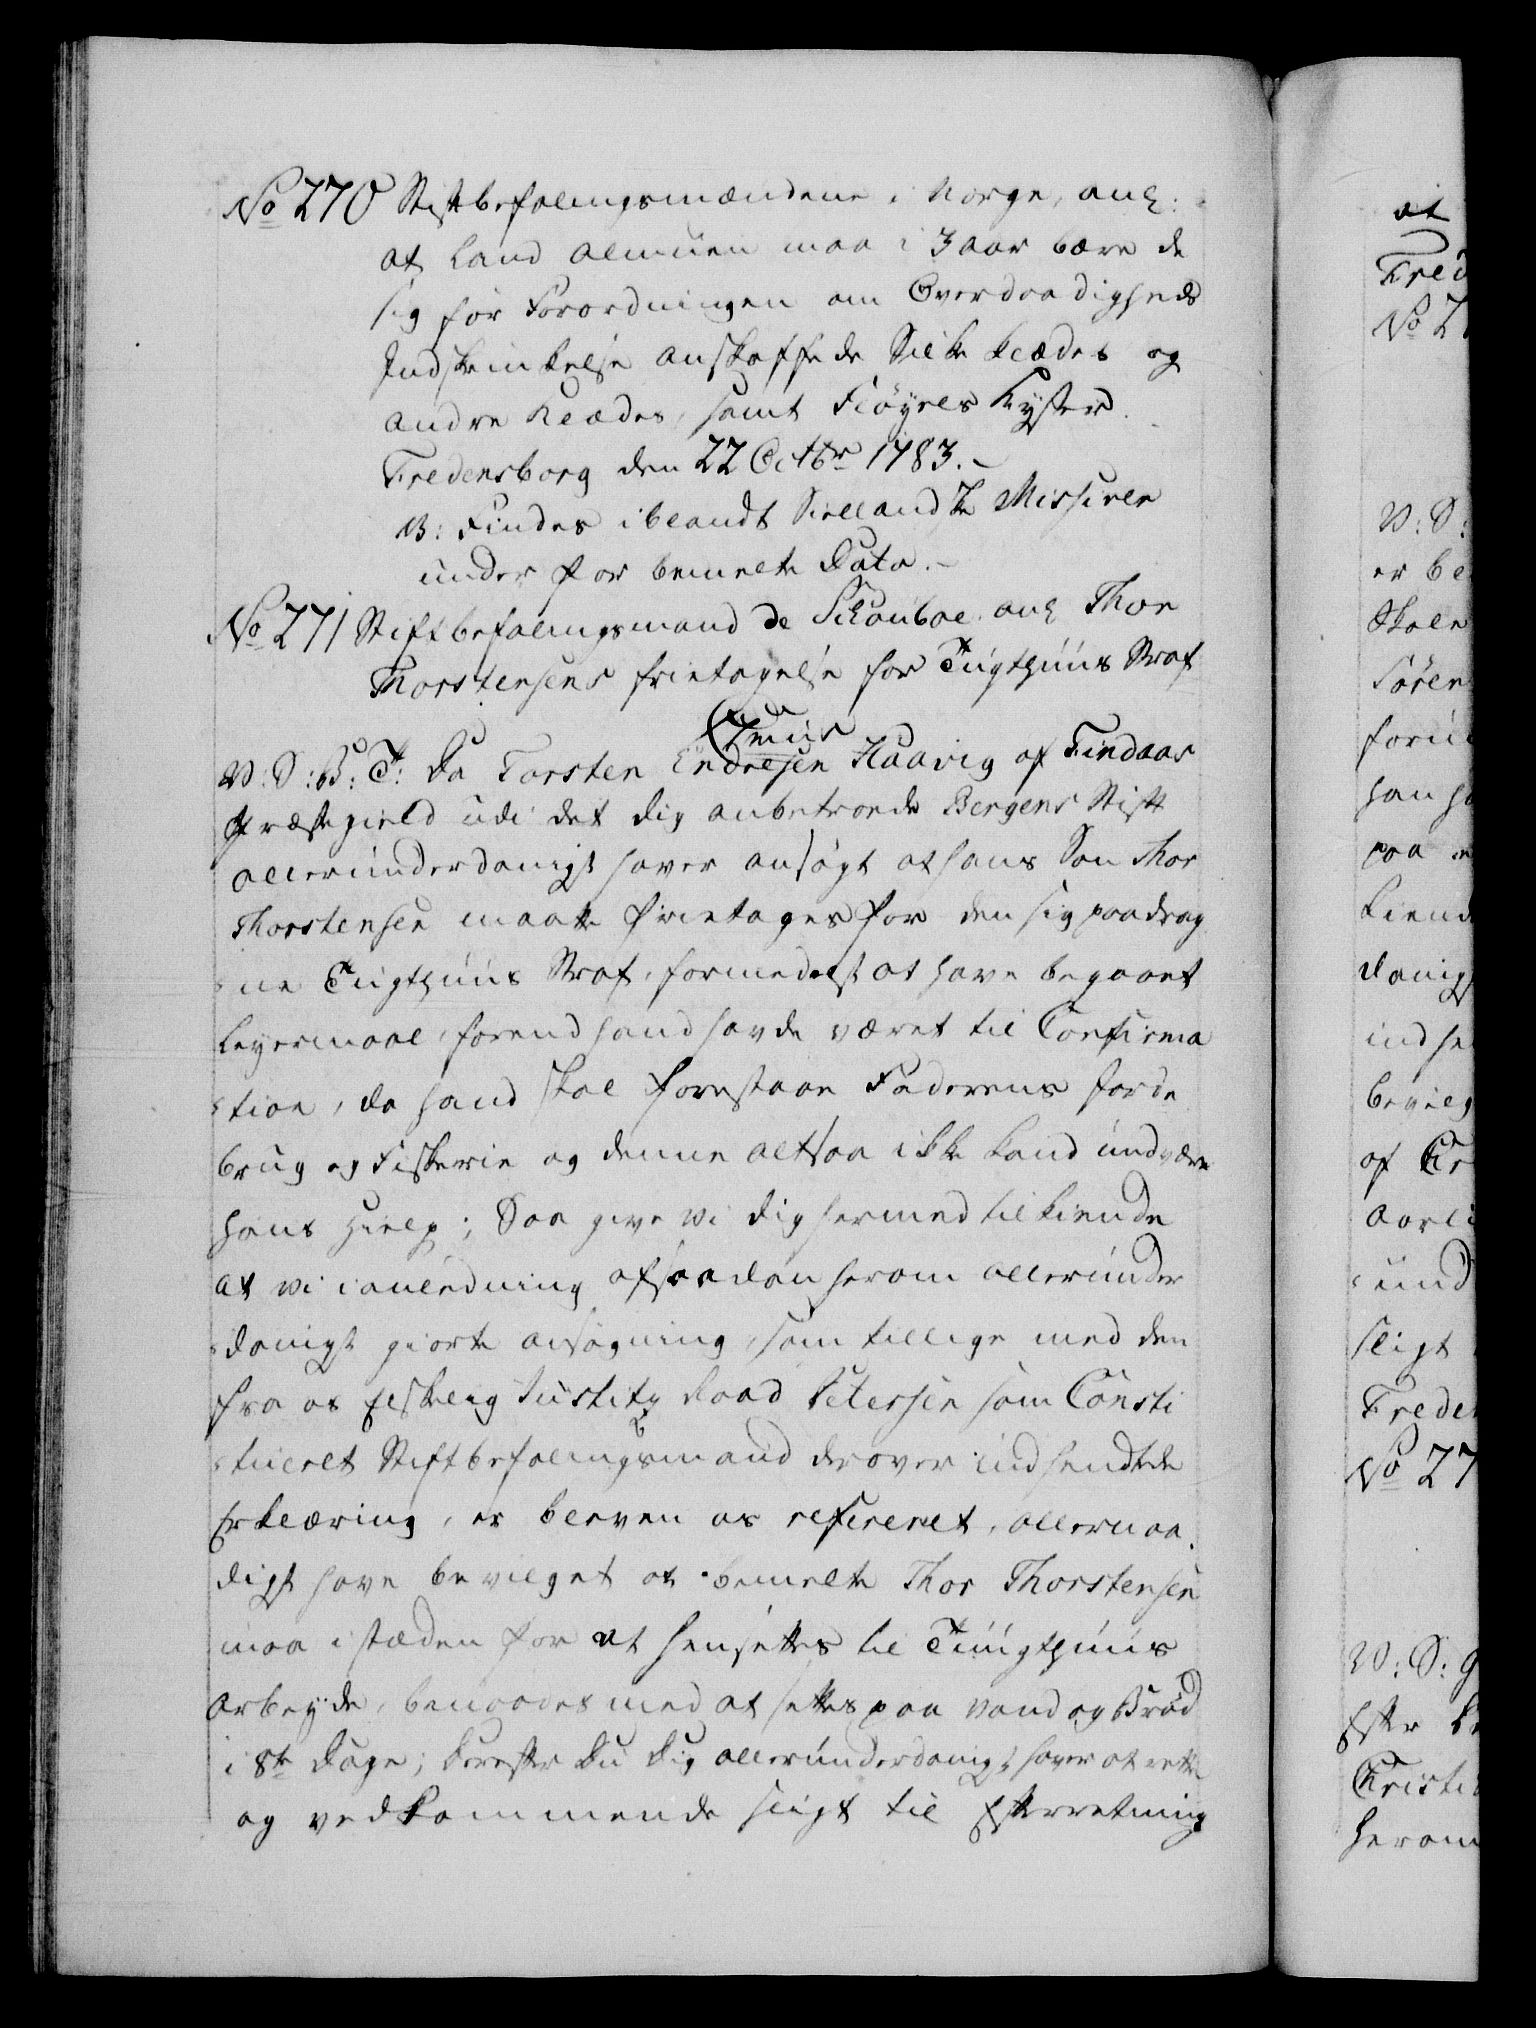 No 270 Stiftbefalingsmændene i Norge, anl:
at Land Almuen maa i 3 aar bære de
sig før Forordningen om Overdaadigheds
Indskrænkelse anskaffede Silke klæder og
andre Klæder, samt Fløyels Hyster.
Fredensborg den 22 Octbr 1783.
NB: Findes iblandt Siellandske Missiver
under forbemelte Dato.
No 271 Stiftbefalingsmand de Schouboe anl Thor
Thorstensens frietagelse for Tugthuus Straf
V: S: B: T: Da Torsten Endresen Haavig af Findaas
Præstegield udi det dig anbetroede Bergens Stift
allerunderdanigst haver ansøgt at hans Søn Thor
Thorstensen maatte frietages for den sig paadrag
ne Tugthuus Straf, formedelst at have begaaet
Leyermaal, forend hand havde været til Confirma
tion, da hand skal forestaae Faderens Jorde
brug og Fiskerie og denne altsaa ikke kand undvære
hans Hielp; Saa give Vi dig hermed tilkiende
at Vi i anledning af saadan herom allerunder
danigst giorte ansøgning, som tillige med den
fra os Elskelig Justitz Raad Petersen som Consti
tueret Stiftbefalingsmand derover indsendte
Erklæring, er bleven os refereret, allernaa
digst have bevilget at bemelte Thor Thorstensen
maa i stæden for at hensættes til Tugthuus
Arbeyde, benaades med at settes paa Vand og Brød
i 8te Dage; Derefter Du dig allerunderdanigst haver at rette
og vedkommende sligt til Efterretning
at
Fred
No 2
V: S:
er be
Skole
Søren
foru
han h
paa
kiend
danig
indse
bevilg
af
Aarli
und
sligt
Frede
No 27
V: S: g
Efter
Christi
herom